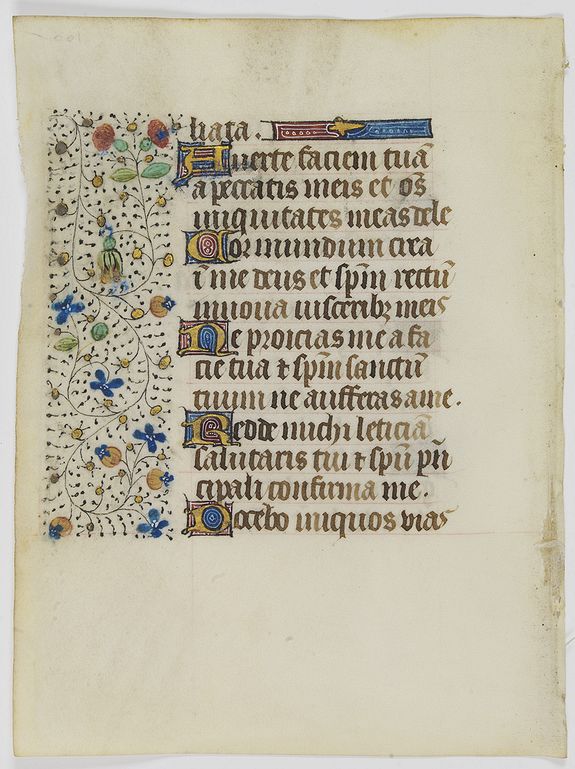 liata.
Auerte faciem tuā
a peccatis meis et os̄
iniquitates meas dele
Cor mundum crea
ī me deus et sp̄m rectū
innoua uisceribꝫ meis
Ne proicias me a fa
cie tua ⁊ sp̄m sanctū
tuum ne aufferas a me.
Redde michi leticiā
salutaris tui ⁊ sp̄u pīn
cipali confirma me.
Docebo iniquos vias